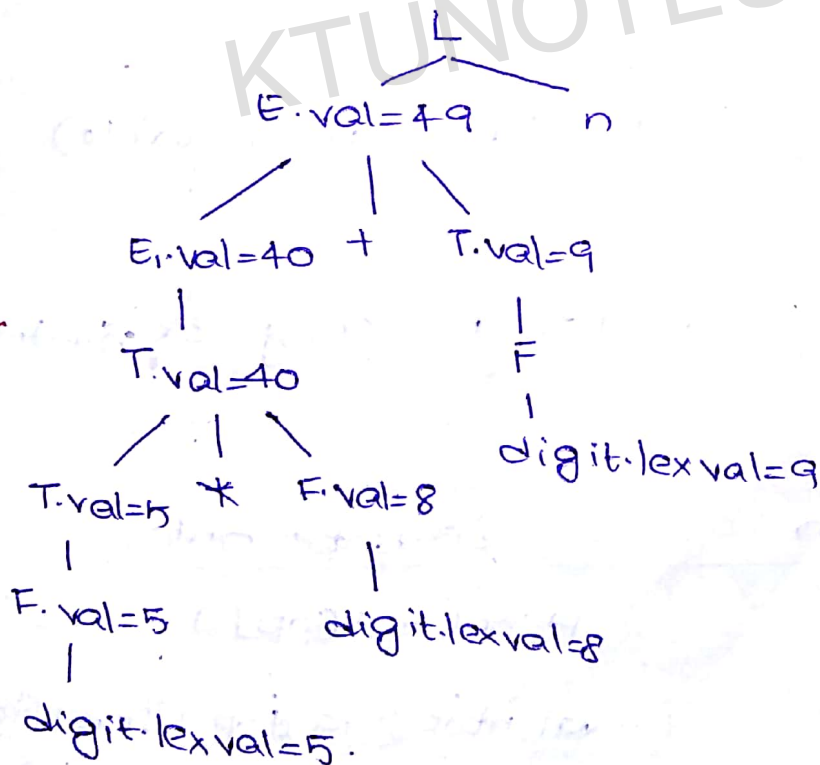 KTUNOTES
L
E.val=49 n
E₁.val=40 + T.val=9
T.val=40 F
T.val=5 * F.val=8 digit.lexval=9
F.val=5 digit.lexval=8
digit.lexval=5.